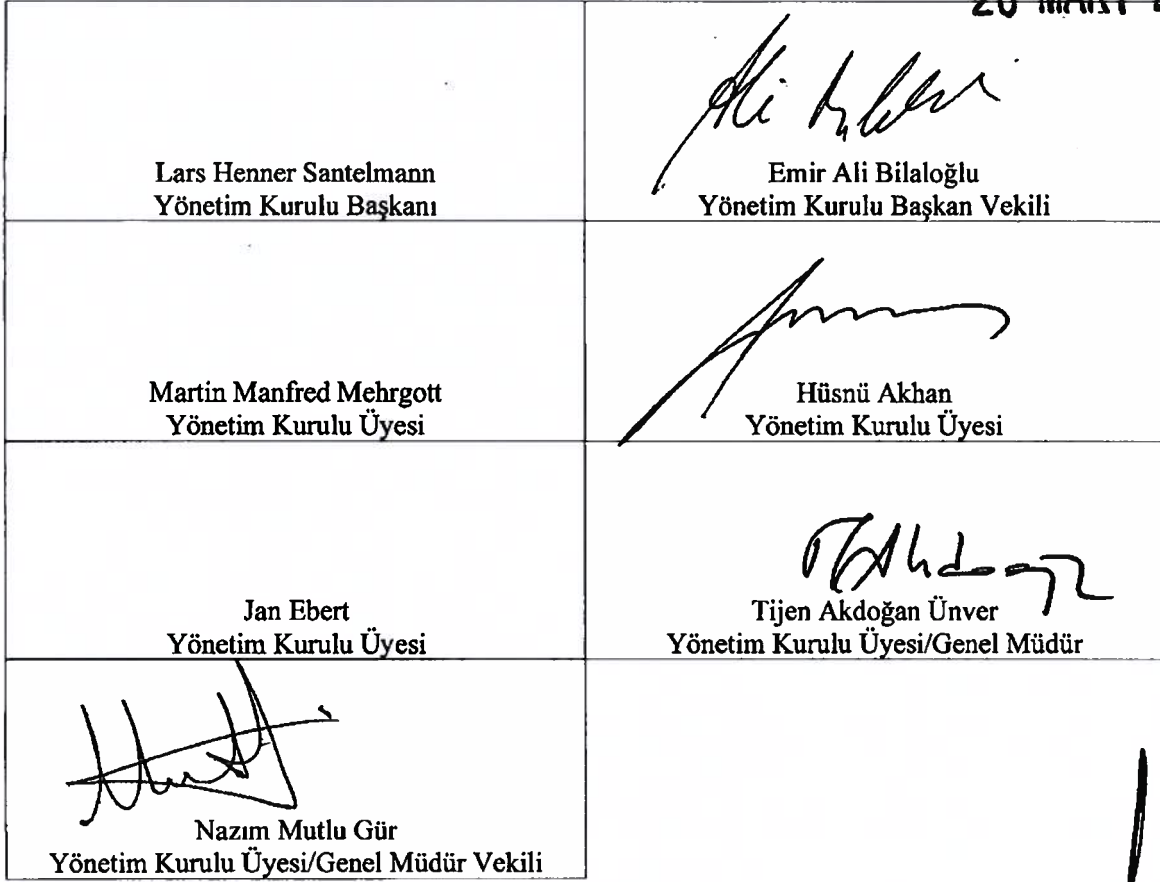 20
Lars Henner Santelmann
Yönetim Kurulu Başkanı
Emir Ali Bilaloğlu
Yönetim Kurulu Başkan Vekili
Martin Manfred Mehrgott
Yönetim Kurulu Üyesi
Hüsnü Akhan
Yönetim Kurulu Üyesi
Jan Ebert
Yönetim Kurulu Üyesi
Tijen Akdoğan Ünver
Yönetim Kurulu Üyesi/Genel Müdür
Nazım Mutlu Gür
Yönetim Kurulu Üyesi/Genel Müdür Vekili